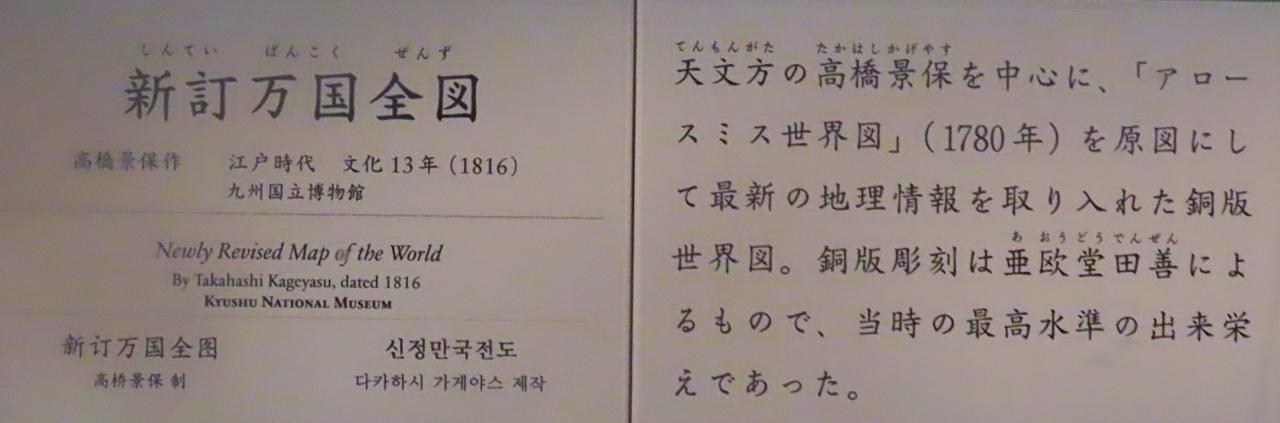 しんてい ばんこく ぜんず
新訂万国全図
高橋景保作 江戸時代 文化13年（1816）
九州国立博物館
Newly Revised Map of the World
By Takahashi Kageyasu, dated 1816
KYUSHU NATIONAL MUSEUM
新订万国全图
高桥景保 制
신정만국전도
다카하시 가게야스 제작
てんもんがた たかはしかげやす
天文方の高橋景保を中心に、「アロー
スミス世界図」（1780年）を原図にし
て最新の地理情報を取り入れた銅版
あ おうどうでんぜん
世界図。銅版彫刻は亜欧堂田善によ
るもので、当時の最高水準の出来栄
えであった。